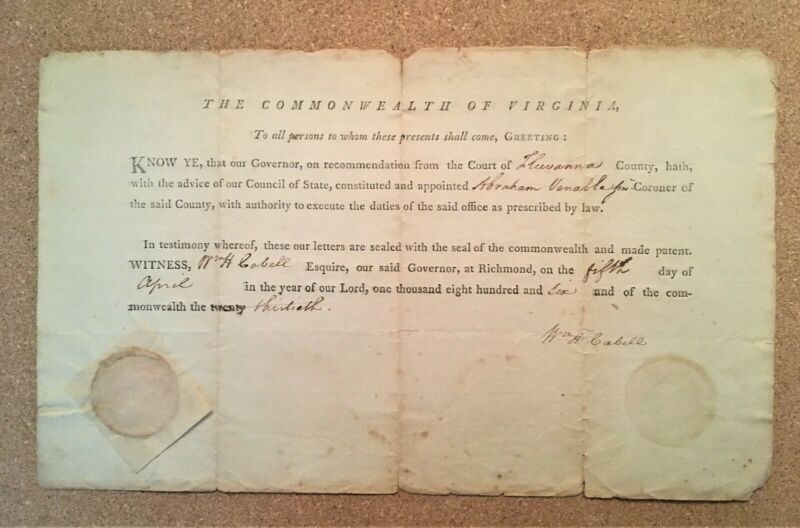 THE COMMONWEALTH OF VIRGINIA,
To all persons to whom these presents shall come, GREETING:
KNOW YE, that our Governor, on recommendation from the Court of Fluvanna County, hath,
with the advice of our Council of State, constituted and appointed Abraham Venable jnr Coroner of
the said County, with authority to execute the duties of the said office as prescribed by law.
In testimony whereof, these our letters are sealed with the seal of the commonwealth and made patent.
WITNESS, Wm H Cabell Esquire, our said Governor, at Richmond, on the fifth day of
April in the year of our Lord, one thousand eight hundred and six and of the com-
monwealth the twenty thirtieth.
Wm H Cabell